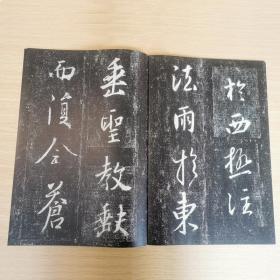 於西極注
法雨於東
垂聖教缺
而復全蒼